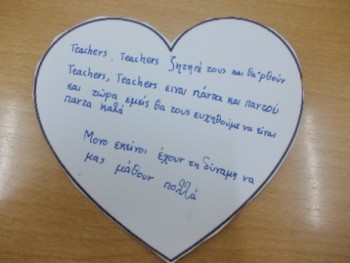 Teachers, Teachers ζητητέ τους και θα'ρθούν
Teachers, Teachers ειναι πάντα και παντού
και τώρα εμείς θα τους ευχηθούμε να είναι
παντα καλά
Μονο εκείνοι έχουν τη δύναμη να
μας μάθουν πολλά